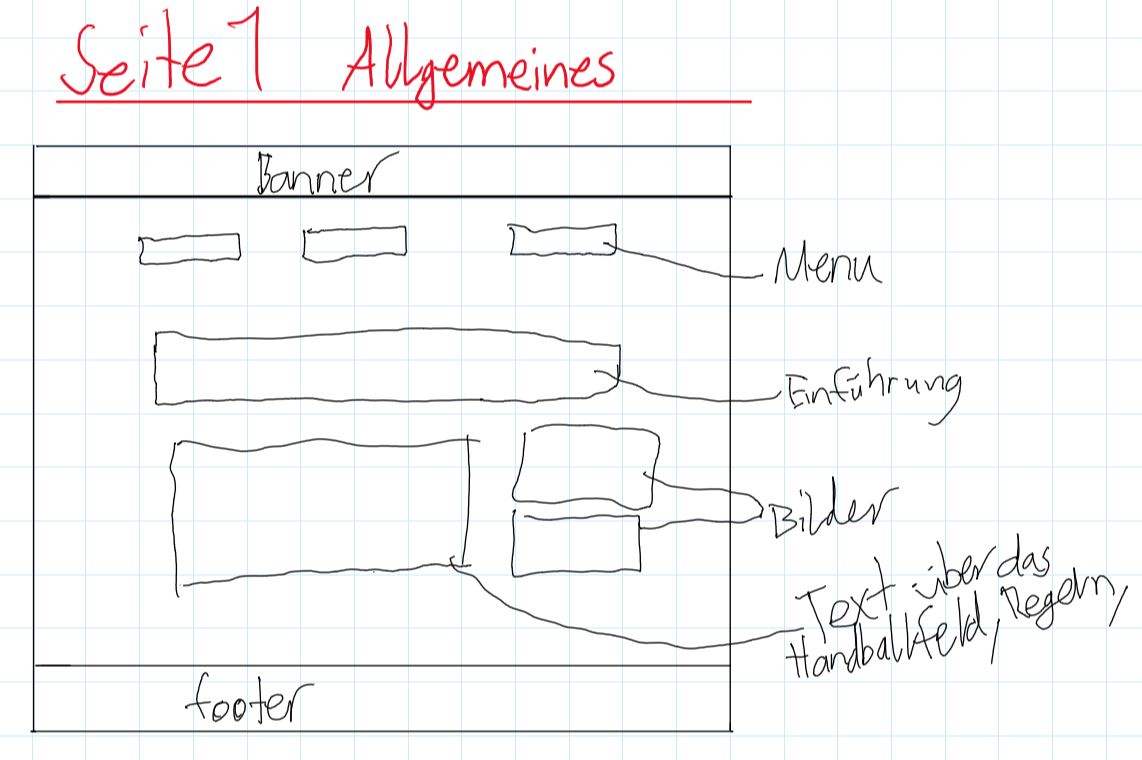 Seite 1 Allgemeines
Banner
Menu
Einführung
Bilder
Text über das
Handballfeld, Regeln,
footer